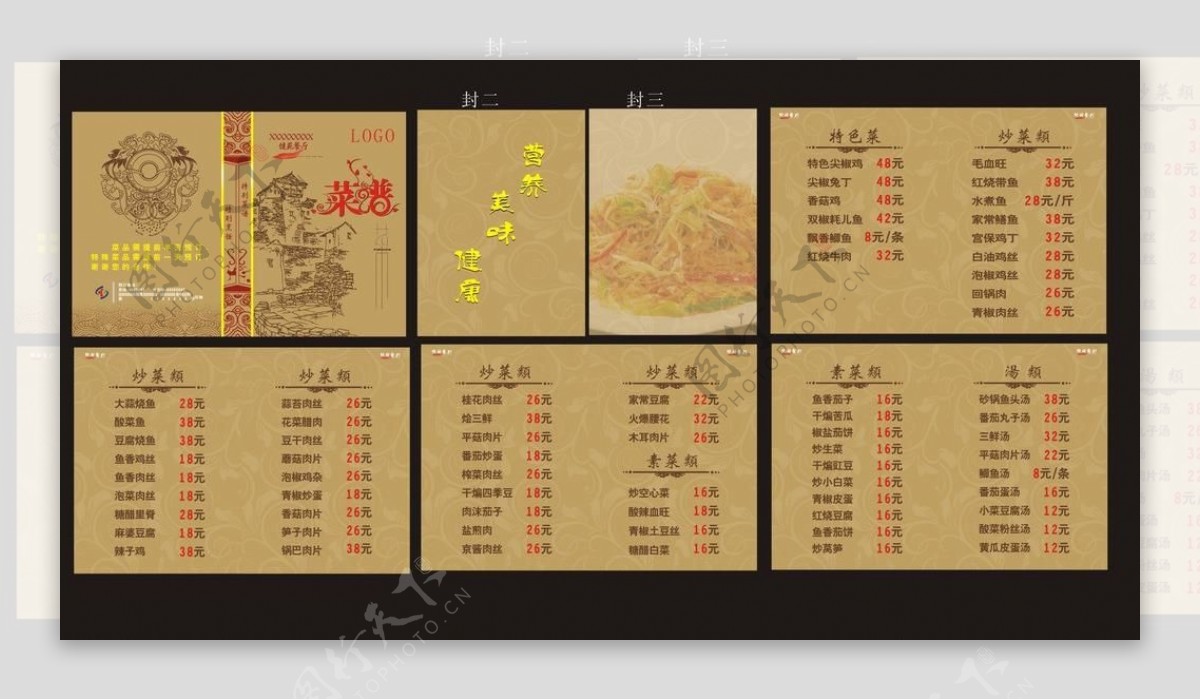 封二 封三
封二 封三
XXXXXXXXX
LOGO
菜谱
营养
美味
健康
特色菜
特色尖椒鸡 48元
尖椒兔丁 48元
香菇鸡 48元
双椒耗儿鱼 42元
飘香鲫鱼 8元/条
红烧牛肉 32元
炒菜類
毛血旺 32元
红烧带鱼 38元
水煮鱼 28元/斤
家常鳝鱼 38元
宫保鸡丁 32元
白油鸡丝 28元
泡椒鸡丝 28元
回锅肉 26元
青椒肉丝 26元
炒菜類
大蒜烧鱼 28元
酸菜鱼 38元
豆腐烧鱼 38元
鱼香鸡丝 18元
鱼香肉丝 18元
泡菜肉丝 18元
糖醋里脊 28元
麻婆豆腐 18元
辣子鸡 38元
炒菜類
蒜苔肉丝 26元
花菜腊肉 26元
豆干肉丝 26元
蘑菇肉片 26元
泡椒鸡杂 26元
青椒炒蛋 18元
香菇肉片 26元
笋子肉片 26元
锅巴肉片 38元
炒菜類
桂花肉丝 26元
烩三鲜 38元
平菇肉片 26元
番茄炒蛋 18元
榨菜肉丝 26元
干煸四季豆 18元
肉沫茄子 18元
盐煎肉 26元
京酱肉丝 26元
炒菜類
家常豆腐 22元
火爆腰花 32元
木耳肉片 26元
素菜類
炒空心菜 16元
酸辣血旺 18元
青椒土豆丝 16元
糖醋白菜 16元
素菜類
鱼香茄子 16元
干煸苦瓜 18元
椒盐茄饼 16元
炒生菜 16元
干煸豇豆 16元
炒小白菜 16元
青椒皮蛋 16元
红烧豆腐 16元
鱼香茄饼 16元
炒莴笋 16元
湯類
砂锅鱼头汤 38元
番茄丸子汤 26元
三鲜汤 32元
平菇肉片汤 22元
鲫鱼汤 8元/条
番茄蛋汤 16元
小菜豆腐汤 12元
酸菜粉丝汤 12元
黄瓜皮蛋汤 12元